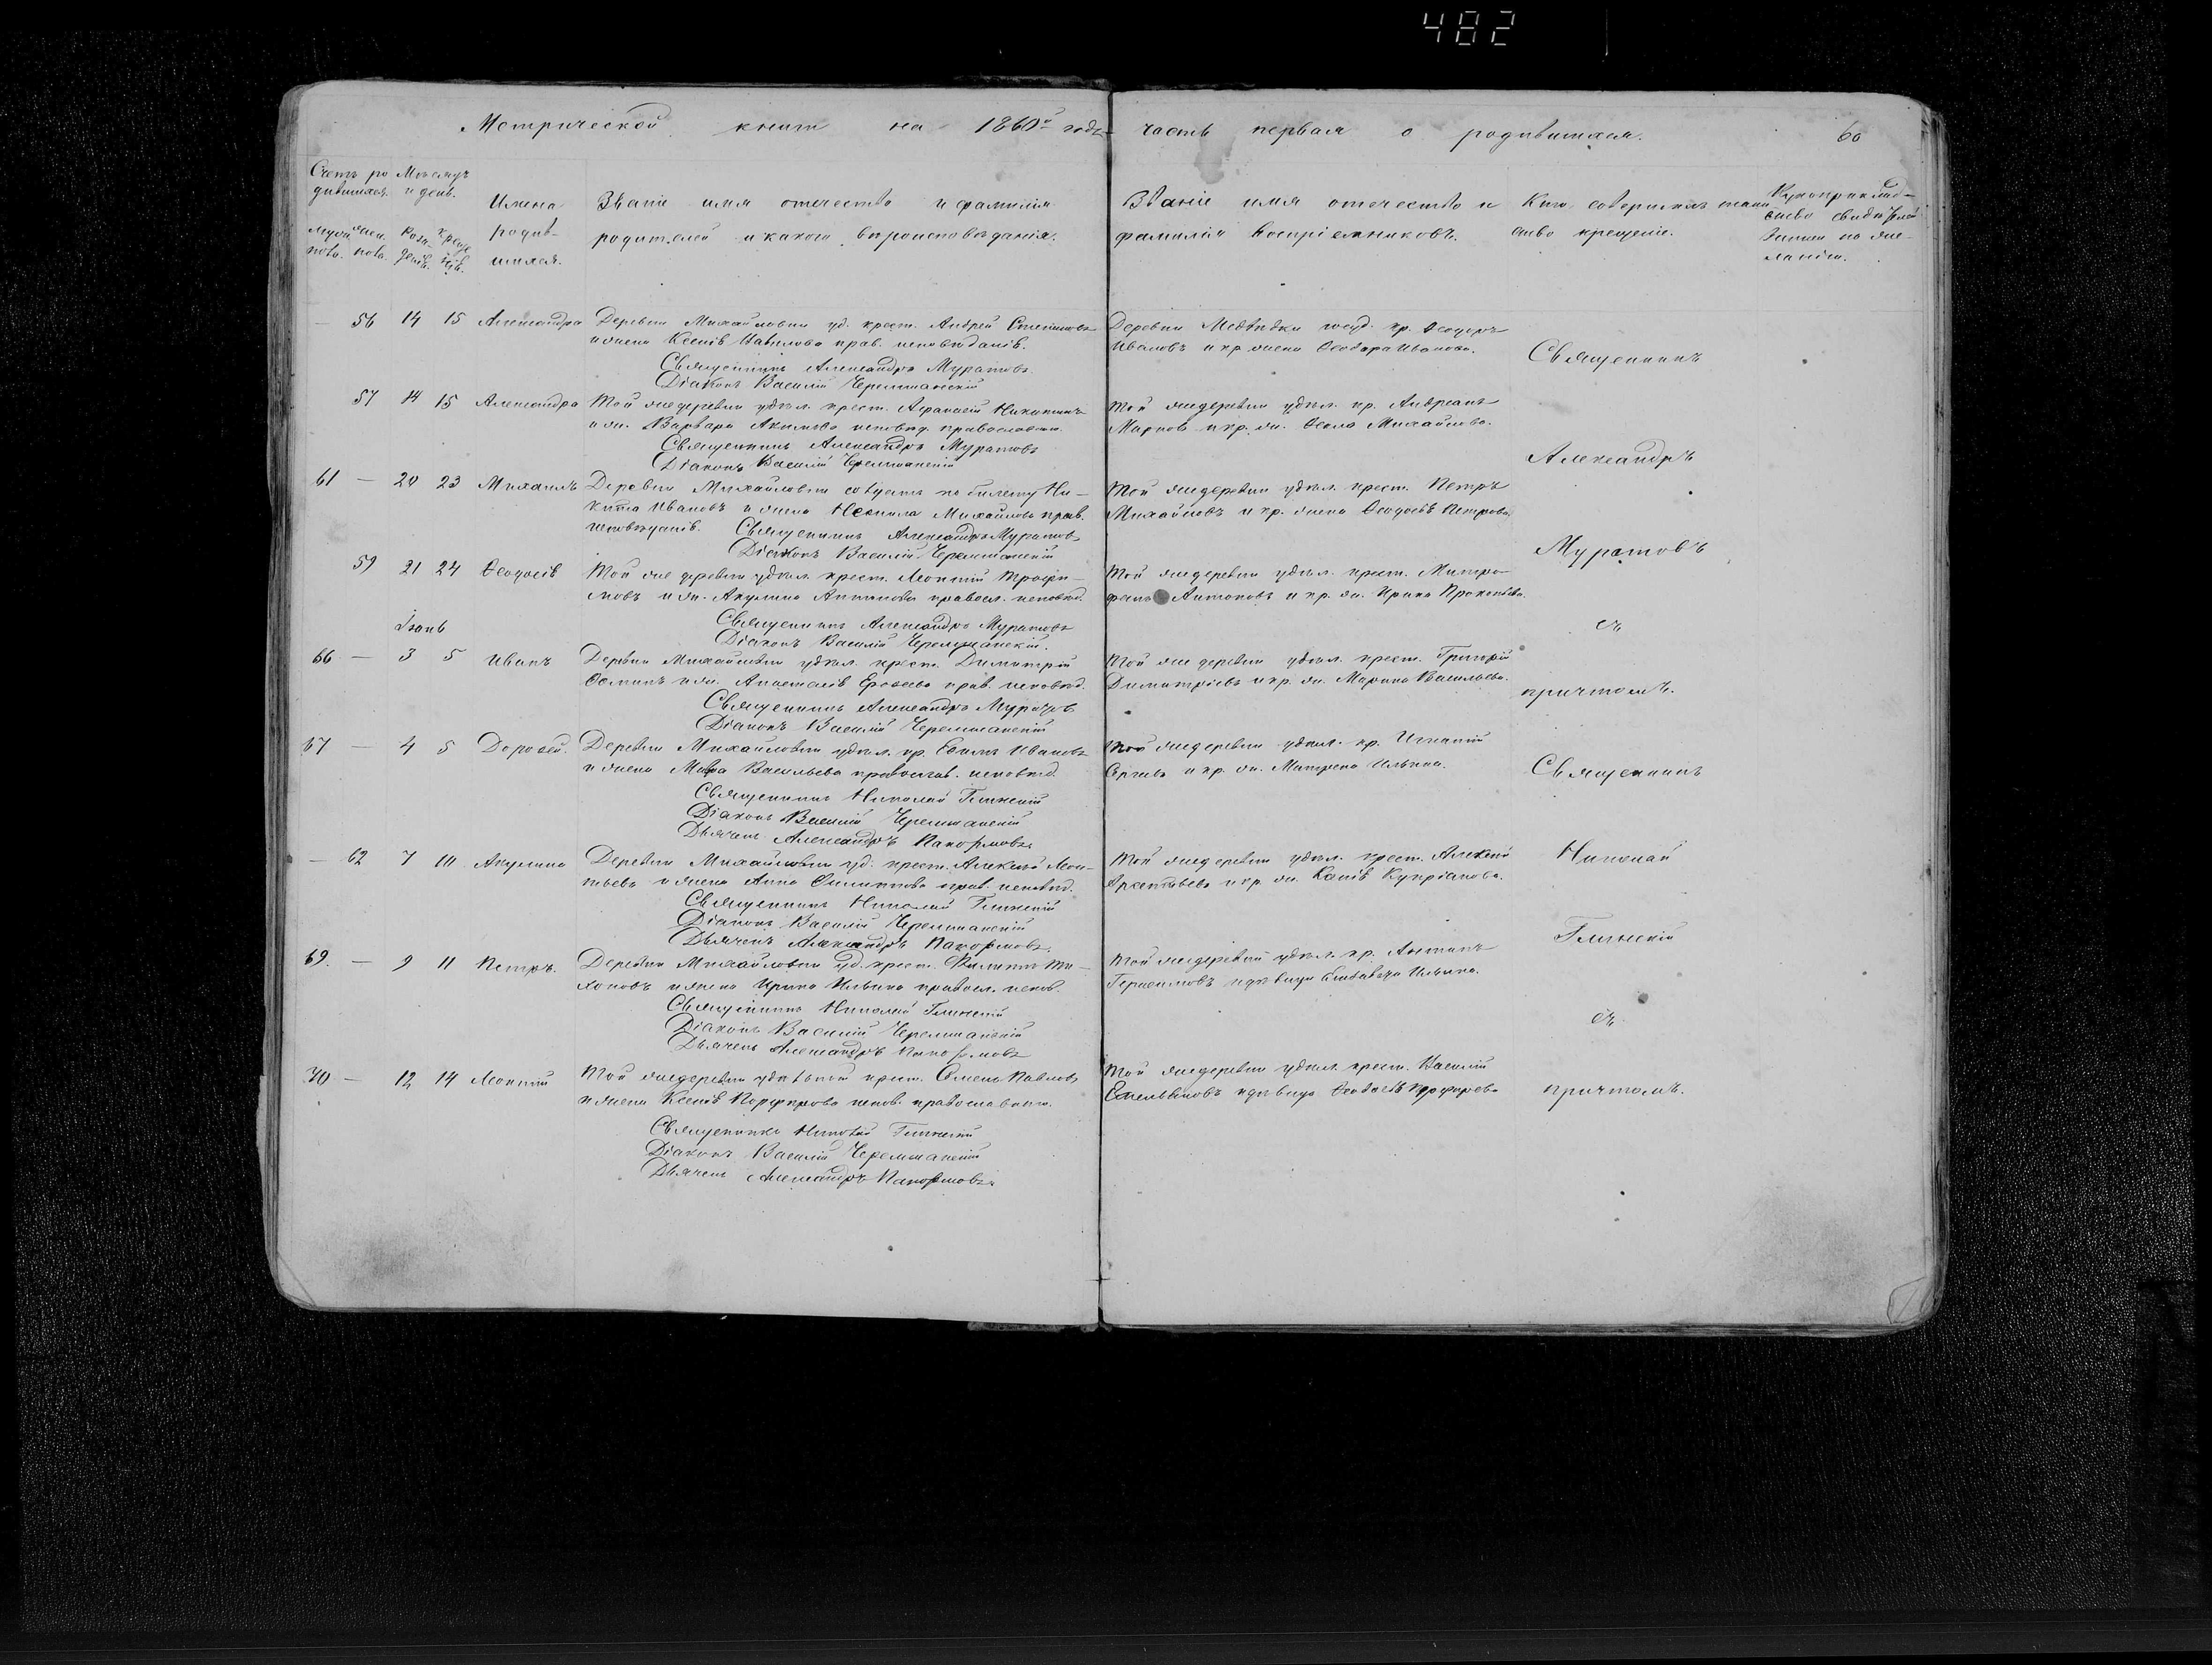 482
Метрической книги на 1860й годъ часть первая о родившихся. 60
Счетъ ро Мѣсяцъ
дившихся. и день.
Имена Званіе имя отечество и фамилія
родив- родителей и какого вѣроисповѣданія.
шихся.
Званіе имя отечество и Кто совершалъ таин
фамилія воспріемниковъ. ство крещенія.
Рукоприклад-
ство свидѣтелей
записи по же-
ланію.
56 14 15 Александра Деревни Михайловки уд. крест. Андрей Степановъ
и жена Ксенія Павлова прав. исповѣданія.
Священникъ Александръ Муратовъ
Діаконъ Василій Черемшанскій
Деревни Медвѣдки госуд. кр. Ѳеодоръ
Ивановъ и кр. жена Ѳеодора Иванова.
57 14 15 Александра Той же деревни удѣл. крест. Аѳанасій Никитинъ
и ж. Варвара Акимова исповѣд. православнаго.
Священникъ Александръ Муратовъ
Діаконъ Василій Черемшанскій
Той же деревни удѣл. кр. Андреанъ
Марковъ и кр. ж. Ѳекла Михайлова.
61 — 20 23 Михаилъ Деревни Михайловки солдатъ по билету Ни-
кита Ивановъ и жена Неонила Михайлова прав.
исповѣданія. Священникъ Александръ Муратовъ
Діаконъ Василій Черемшанскій
Той же деревни удѣл. крест. Петръ
Михайловъ и кр. жена Ѳеодосія Петрова.
59 21 24 Ѳеодосія Той же деревни удѣл. крест. Леонтій Трофи-
мовъ и ж. Акулина Антонова правосл. исповѣд.
Священникъ Александръ Муратовъ
Діаконъ Василій Черемшанскій.
Той же деревни удѣл. крест. Митро-
фанъ Антоновъ и кр. ж. Ирина Прокопьева.
Іюнь
66 — 3 5 Иванъ Деревни Михайловки удѣл. крест. Димитрій
и ж. Анастасія прав. исповѣд.
Священникъ Александръ Муратовъ
Діаконъ Василій Черемшанскій
Той же деревни удѣл. крест. Григорій
Димитріевъ и кр. ж. Марина Васильева.
67 — 4 5 Дороѳей. Деревни Михайловки удѣл. кр. Ивановъ
и жена Мавра Васильева православ. исповѣд.
Священникъ Николай Глинскій
Діаконъ Василій Черемшанскій
Дьячекъ Александръ Панормовъ
Той же деревни удѣл. кр. Игнатій
Сергѣевъ и кр. ж. Матрена Ильина.
— 62 7 10 Акулина Деревни Михайловки уд. крест. Алексѣй Леон-
тьевъ и жена Анна Филиппова прав. исповѣд.
Священникъ Николай Глинскій
Діаконъ Василій Черемшанскій
Дьячекъ Александръ Панормовъ
Той же деревни удѣл. крест. Алексѣй
и кр. ж. Купріанова.
69. — 9 11 Петръ. Деревни Михайловки уд. крест. Филиппъ Ти-
хоновъ и жена Ирина Ильина правосл. испов.
Священникъ Николай Глинскій
Діаконъ Василій Черемшанскій
Дьячекъ Александръ Панормовъ
Той же деревни удѣл. кр. Антипъ
Герасимовъ и дѣвица Елизавета Ильина.
70 — 12 14 Леонтій Той же деревни удѣльной крест. Семенъ Павловъ
и жена Ксенія Порфирова испов. православнаго.
Священникъ Николай Глинскій
Діаконъ Василій Черемшанскій
Дьячекъ Александръ Панормовъ
Той же деревни удѣл. крест. Василій
Емельяновъ и дѣвица Ѳеодосія
Священникъ
Александръ
Муратовъ
съ
причтомъ.
Священникъ
Николай
Глинскій
съ
причтомъ.